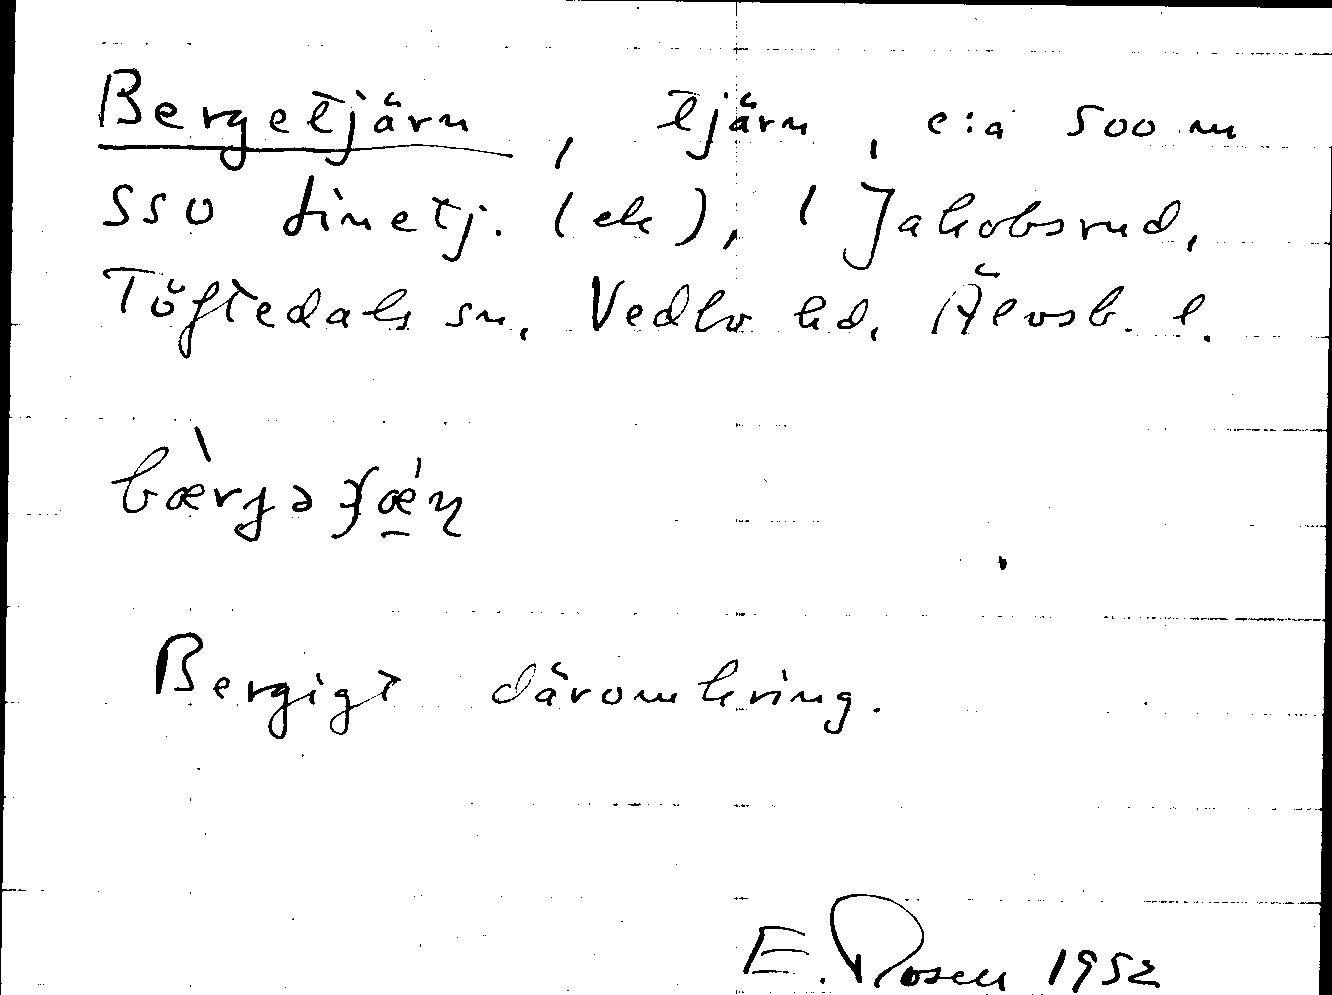 Bergetjärn, tjärn, c:a 500 m
SSO Linetj. (ek), 1 Jakobsrud,
Töftedals sn, Vedbo hd, Älvsb. l.
Bergigt däromkring.
E. Rosen 1952